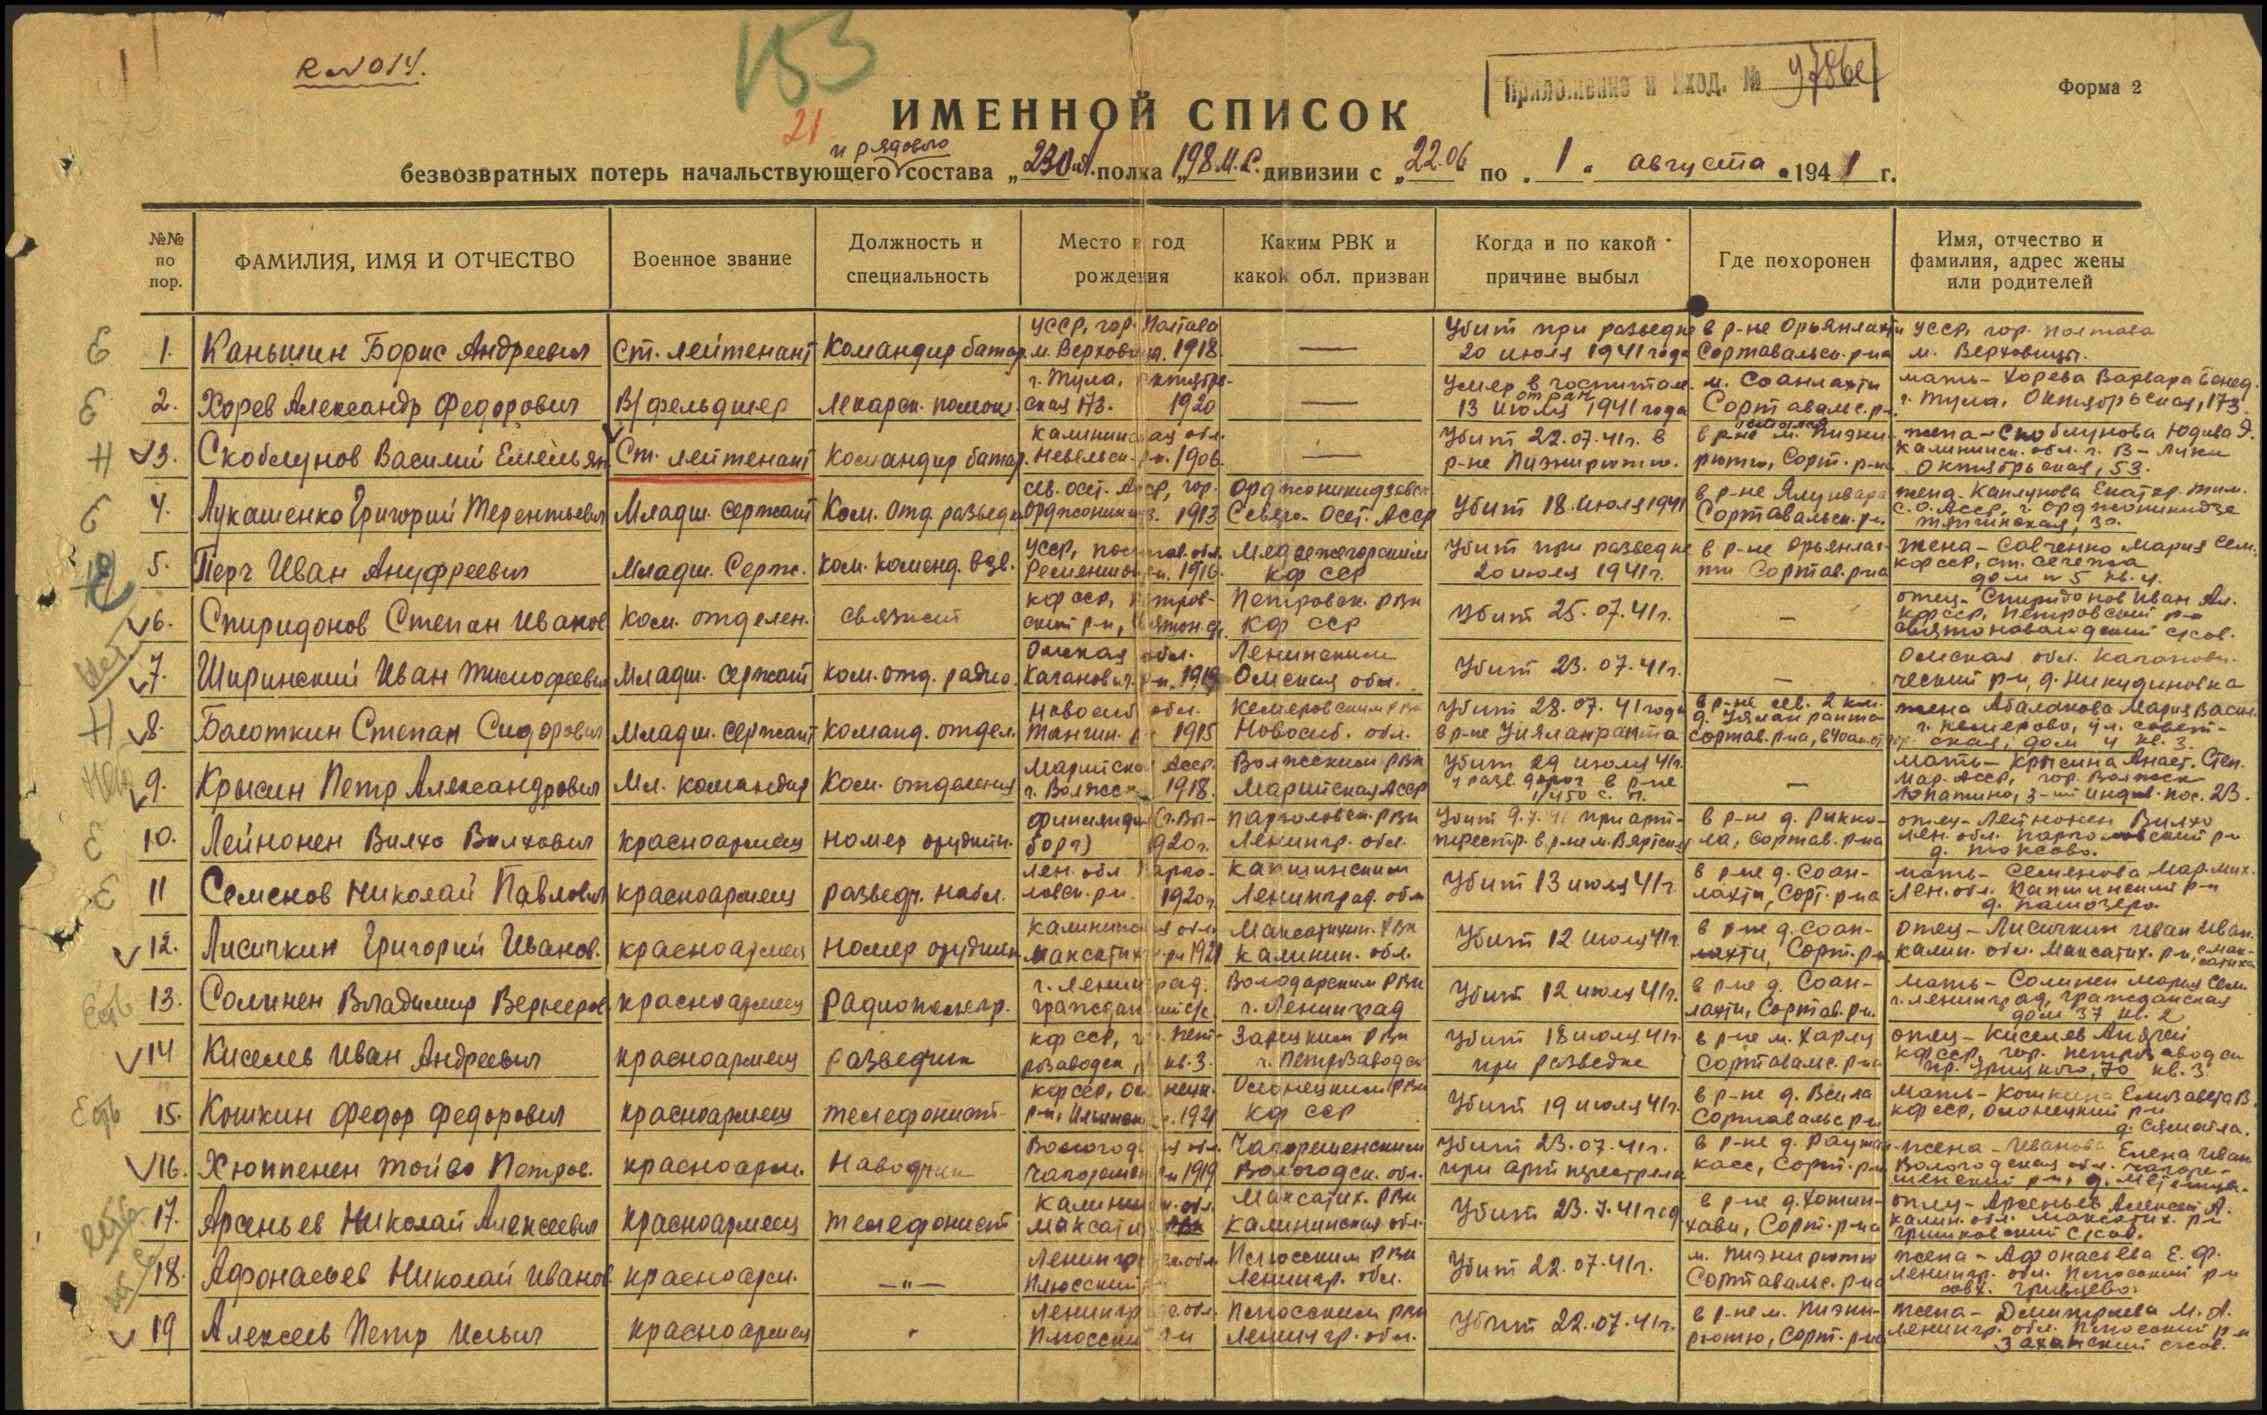 R N 014.
153
21
Приложение к вход. №
Форма 2
ИМЕННОЙ СПИСОК
и рядового
безвозвратных потерь начальствующего состава „230 ап. полка 198 м.с. дивизии с „22.06 по „1" августа 1941 г.
№№ по пор.
ФАМИЛИЯ, ИМЯ И ОТЧЕСТВО
Военное звание
Должность и специальность
Место и год рождения
Каким РВК и какой обл. призван
Когда и по какой причине выбыл
Где похоронен
Имя, отчество и фамилия, адрес жены или родителей
1. Каньшин Борис Андреевич
Ст. лейтенант
Командир батар.
УССР, гор. Полтава
1918
Убит при разведке
20 июля 1941 года
в р-не Орьянлахти
Сортавальск. р-на
УССР, гор. Полтава
м. Верховицы.
2. Хорев Александр Федорович
В/фельдшер
Лекарск. помощ.
г. Тула, октябрь-
ская 173. 1920
Умер в госпитале
от ран
13 июля 1941 года
м. Соанлахти
Сортавальс. р-
мать - Хорева Варвара
г. Тула, Октябрьская, 173.
3. Скоблунов Василий Емельян
Ст. лейтенант
Командир батар.
Калининская обл.
Невельск. р-н. 1906
Убит 22.07.41г. в
р-не Пиэнирютю.
в р-не м. Пиэни-
рютю, Сорт. р-на
жена - Скоблунова
Калининск. обл. г. В-Луки
Октябрьская, 53.
4. Лукашенко Григорий Терентьевич
Младш. сержант
Ком. отд. разведк
Сев. Осет. АССР, гор.
Орджоники з. 1913
Орджоникидзевск
Северо-Осет. АССР
Убит 18 июля 1941
в р-не
Сортавальск. р-н.
жена - Каплунова
С.О. АССР, г. Орджоникидзе
5. Перч Иван Ануфреевич
Младш. Серж.
Ком. коменд. взв.
УССР, обл.
р-н. 1916
Медвежегорским
КФ ССР
Убит при разведке
20 июля 1941 г.
в р-не Орьянлах-
ти Сортав. р-на
жена - Савченко Мария Сем.
КФССР, ст. Сегежа
дом № 5 кв. 4.
6. Спиридонов Степан Иванов
Ком. отделен.
связист
КФ ССР, Петров-
ский р-н,
Петровск. РВК
КФ ССР
Убит 25.07.41г.
отец - Спиридонов Иван Ал.
КФССР, Петровский р-н
7. Ширинский Иван Тимофеевич
Младш. сержант
ком. отд. радио
Омская обл.
Каганович. р-н. 1919
Ленинским
Омская обл.
Убит 23.07.41г.
Омская обл. Каганови-
ческий р-н, д. Никудиновка
8. Болоткин Степан Сидорович
Младш. сержант
команд. отдел.
Новосиб обл.
1915
Кемеровским РВК
Новосиб. обл.
Убит 28.07.41 года
в р-не Уяланранта
в р-не сев. 2 км.
д. Уяланранта
Сортав. р-на,
жена Абалакова Мария Васил.
г. Кемерово, ул. Совет-
ская, дом 4 кв. 3.
9. Крысин Петр Александрович
Мл. командир
Ком. отделения
Марийская АССР.
г. Волжск 1918.
Волжским РВК
Марийская АССР
Убит 29 июля 41г.
мать - Крысина Анаст. Степ.
Мар. АССР, гор. Волжск
Лопатино, 3-ий пос. 23.
10. Лейнонен Вилхо Вилхович
красноармеец
номер орудийн.
Финлянди (г. Вы-
борг) 1920г.
Парголовск. РВК
Ленингр. обл.
Убит 9.7.41 при арт-
перестр. в р-не м. Вяртсиля
в р-не д. Рикко-
ла, Сортав. р-на
отец - Лейнонен Вилхо
Лен. обл. Парголовский р-н
д. Токсово.
11 Семенов Николай Павлович
красноармеец
разведч. набл.
Лен. обл Парго-
ловск. р-н. 1920г.
Капшинским
Ленинград. обл
Убит 13 июля 41г.
в р-не д. Соан-
лахти, Сорт. р-на
мать - Семенова Мар. Мих.
Лен. обл. Капшинский р-н
д. Пашозеро
12. Лисичкин Григорий Иванов.
красноармеец
номер орудийн
Калининская обл.
Максатих р-н 1921
Максатихин. РВК
Калинин. обл.
Убит 12 июля 41г.
в р-не д. Соан-
лахти, Сорт. р-н
отец - Лисичкин Иван Иван.
Калин. обл. Максатих. р-н,
13. Солинен Владимир Вернеров
красноармеец
радиотелегр.
г. Ленинград.
Володарским РВК
г. Ленинград
Убит 12 июля 41г.
в р-не д. Соан-
лахти, Сортав. р-н.
мать - Солинен Мария Сем.
г. Ленинград, Гражданская
дом 37 кв. 2
14 Киселев Иван Андреевич
красноармеец
разведчик
КФ ССР, г. Пет-
розаводск, кв. 3.
Зарецким РВК
г. Петрозаводск
Убит 18 июля 41г.
при разведке
в р-не м. Харлу
Сортавальс. р-на
отец - Киселев Андрей
КФССР, гор. Петрозаводск
пр. Урицкого, 70 кв. 3
15. Кошкин Федор Федорович
красноармеец
телефонист
КФССР, Олонецк.
1921
Олонецким РВК
КФ ССР
Убит 19 июля 41г.
в р-не д.
Сортавальс р-н
мать - Кошкина Елизавета В.
КФССР, Олонецкий р-н
16. Хюппенен Тойво Петров.
красноарм.
Наводчик
Вологодская обл.
р-н 1919
Вологодск. обл.
Убит 23.07.41г.
при артперестрелк
в р-не д.
Сорт. р-н
жена - Иванова Елена Иван
Вологодская обл.
17. Арсеньев Николай Алексеевич
красноармеец
телефонист
Калининск. обл.
Максатих. РВК
Калининская обл.
Убит 23.7.41 год
в р-не д.
Сорт. р-на
отец - Арсеньев Алексей А.
Калин. обл. Максатих. р-н
18. Афонасьев Николай Иванов
красноарм.
—„—
Ленинград. обл
Плюсский
Плюсским РВК
Ленингр. обл.
Убит 22.07.41г.
м. Пиэнирютю
Сортавальс. р-на
жена - Афонасьева Е. Ф.
Ленингр. обл. Плюсский р-н
19 Алексеев Петр Ильич
красноармеец
Ленингр. обл.
Плюсский р-н
Плюсским РВК
Ленингр. обл.
Убит 22.07.41г.
в р-не м. Пиэни-
рютю, Сорт. р-на
жена - Дмитриева М. А.
Ленингр. обл. Плюсский р-н